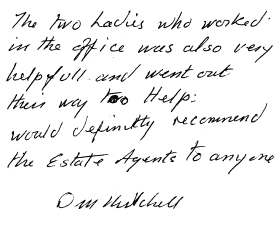 The two Ladies who worked
in the office was also very
helpfull and went out
their way too Help:
would definitly recommend
the Estate Agents to anyone
D Mitchell